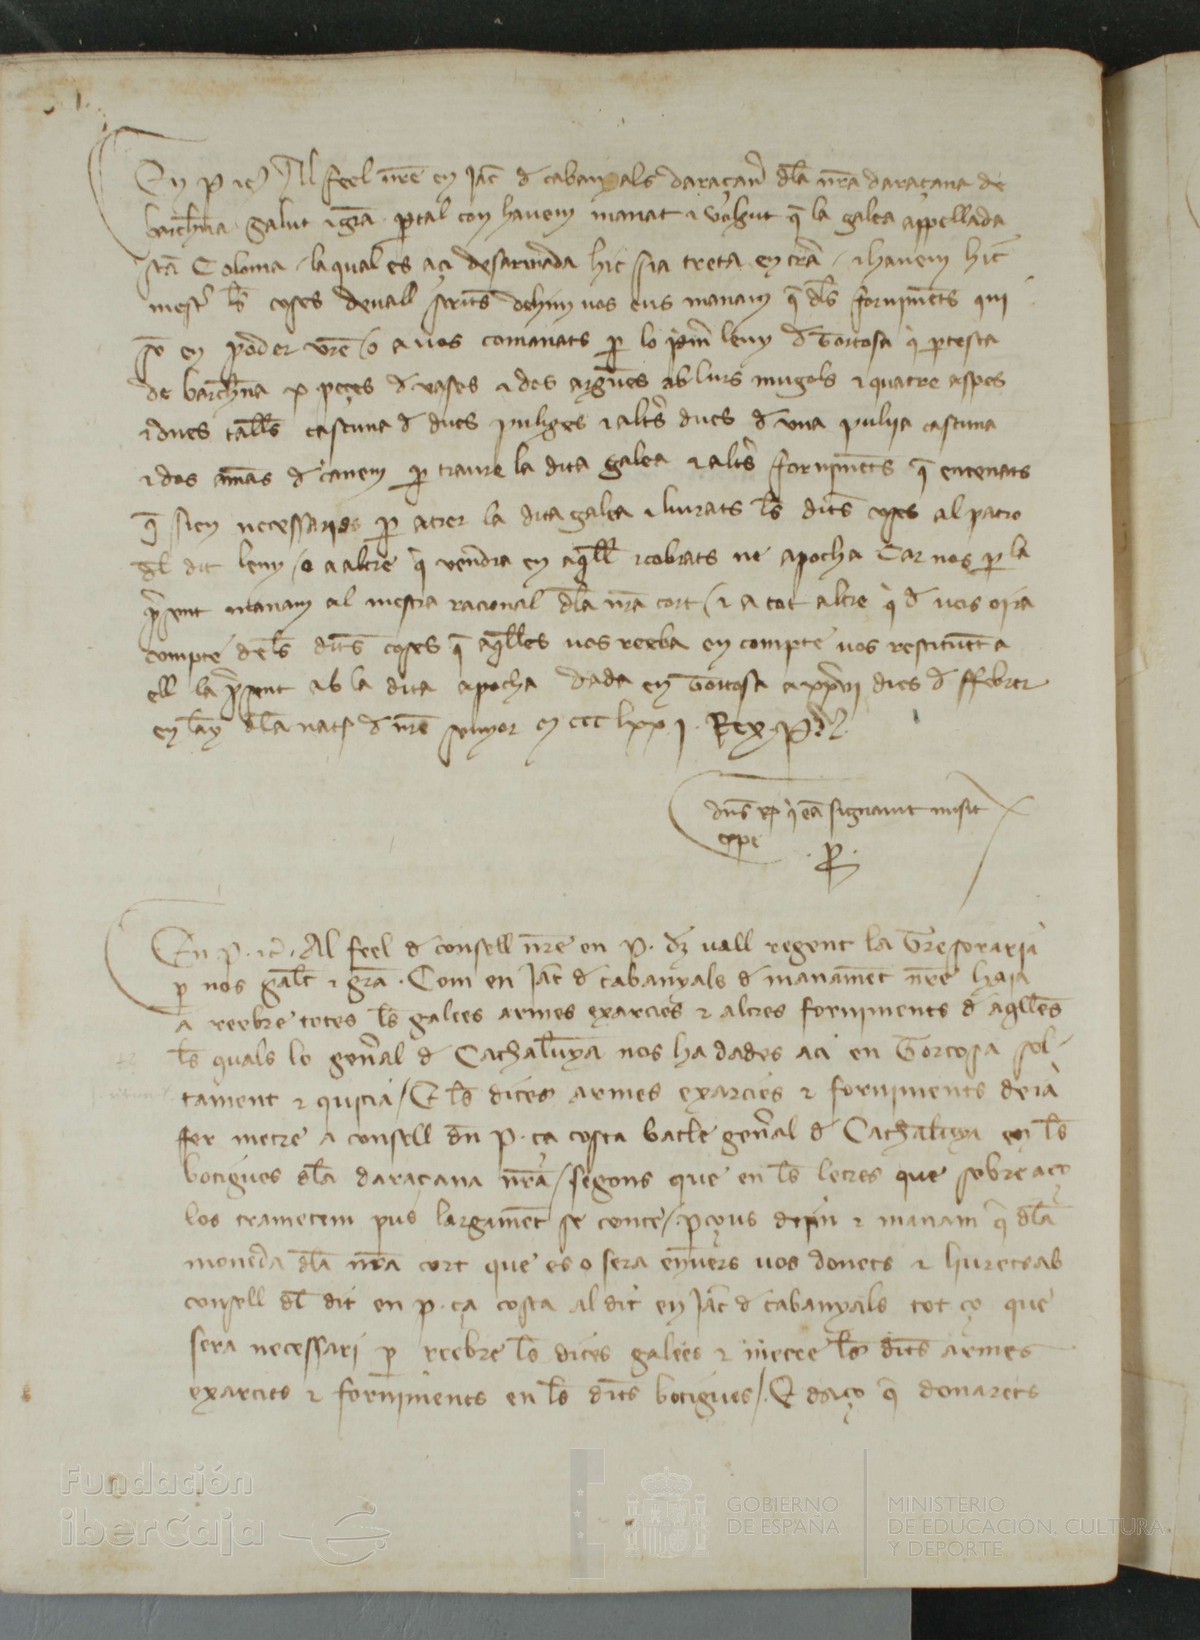 En P. &c. Al feel nr̄e en Jac̄ d cabanyals daraçan̄ dl̄a nr̄a daraçana de
barchn̄a salut & gr̄a. ꝑtal com havem manat & volgut q̄ la galea appellada
sc̄a Coloma / la qual es açi desarmada hic sia treta en tr̄a / & havem hic
mest̄ ls̄ coses devall scrits dehim vos eus manam q̄ dl̄s fornimēts qui
so en poder vr̄e / o a vos comanats ꝑ lo pm̄ leny d Tortosa q̄ ꝑtesca
de barchn̄a x peçes d vases & dos argues ab lurs mugols & quatre aspes
& dues tall̄s cascuna d dues puliges & altr̄s dues d una pulija cascuna
& dos ama̅s d canem ꝑ traure la dita galea & altr̄s fornimēts q̄ entenats
q̄ sien necessaris ꝑ atrer la dita galea & liurats ls̄ dits̄ coses al patro
dl̄ dit leny / o a altre q̄ vendra en aq̄ll & cobrats ne apocha Car nos ꝑ la
p̄sent manam al mestra racional dl̄a nr̄a cort / & a tot altre q̄ d vos oira
compte de ls̄ dit̄s coses q̄ aq̄lles vos reeba en compte vos restituēt a
ell la p̄sent ab la dita apocha dada en Tortosa a xxvi dies d ffebrer
en lay dl̄a nat̄ d nr̄e senyor m ccc lxx j. Rex P.
dn̄s rx̄ q̄ ea̅ signavit misit
expe
. P̄ .
En P. &c. Al feel d consell nr̄e en P. dz vall regent la Tresoraria
ꝑ nos salt̄ & gr̄a. Com en Jac̄ d cabanyals d manamēt nr̄e haja
a reebre totes ls̄ galees armes exarcies & altres forniments d aq̄lles
ls̄ quals lo gen̄al d Cathalunya nos ha dades aci en Tortosa sol-
tament & quitia / E ls̄ dites armes exarcies & forniments deja
fer metre a consell dn̄ P. ça costa batle gen̄al d Cathalunya en ls̄
botigues dl̄a daraçana nr̄a / segons que en ls̄ letres que sobre aço
los trametem pus largamēt se conte / ꝑçous deim & manam q̄ dl̄a
moneda dl̄a nr̄a cort que es o sera envers vos donets & liurets ab
consell dl̄ dit en P. ça costa al dit en Jac̄ d cabanyals tot ço que
sera necessari ꝑ reebre ls̄ dites galees & metre ls̄ dits̄ armes
exarcies & forniments en ls̄ dits̄ botigues /. E daço q̄ donarets
Fundación
iberCaja
GOBIERNO
DE ESPAÑA
MINISTERIO
DE EDUCACIÓN, CULTURA
Y DEPORTE